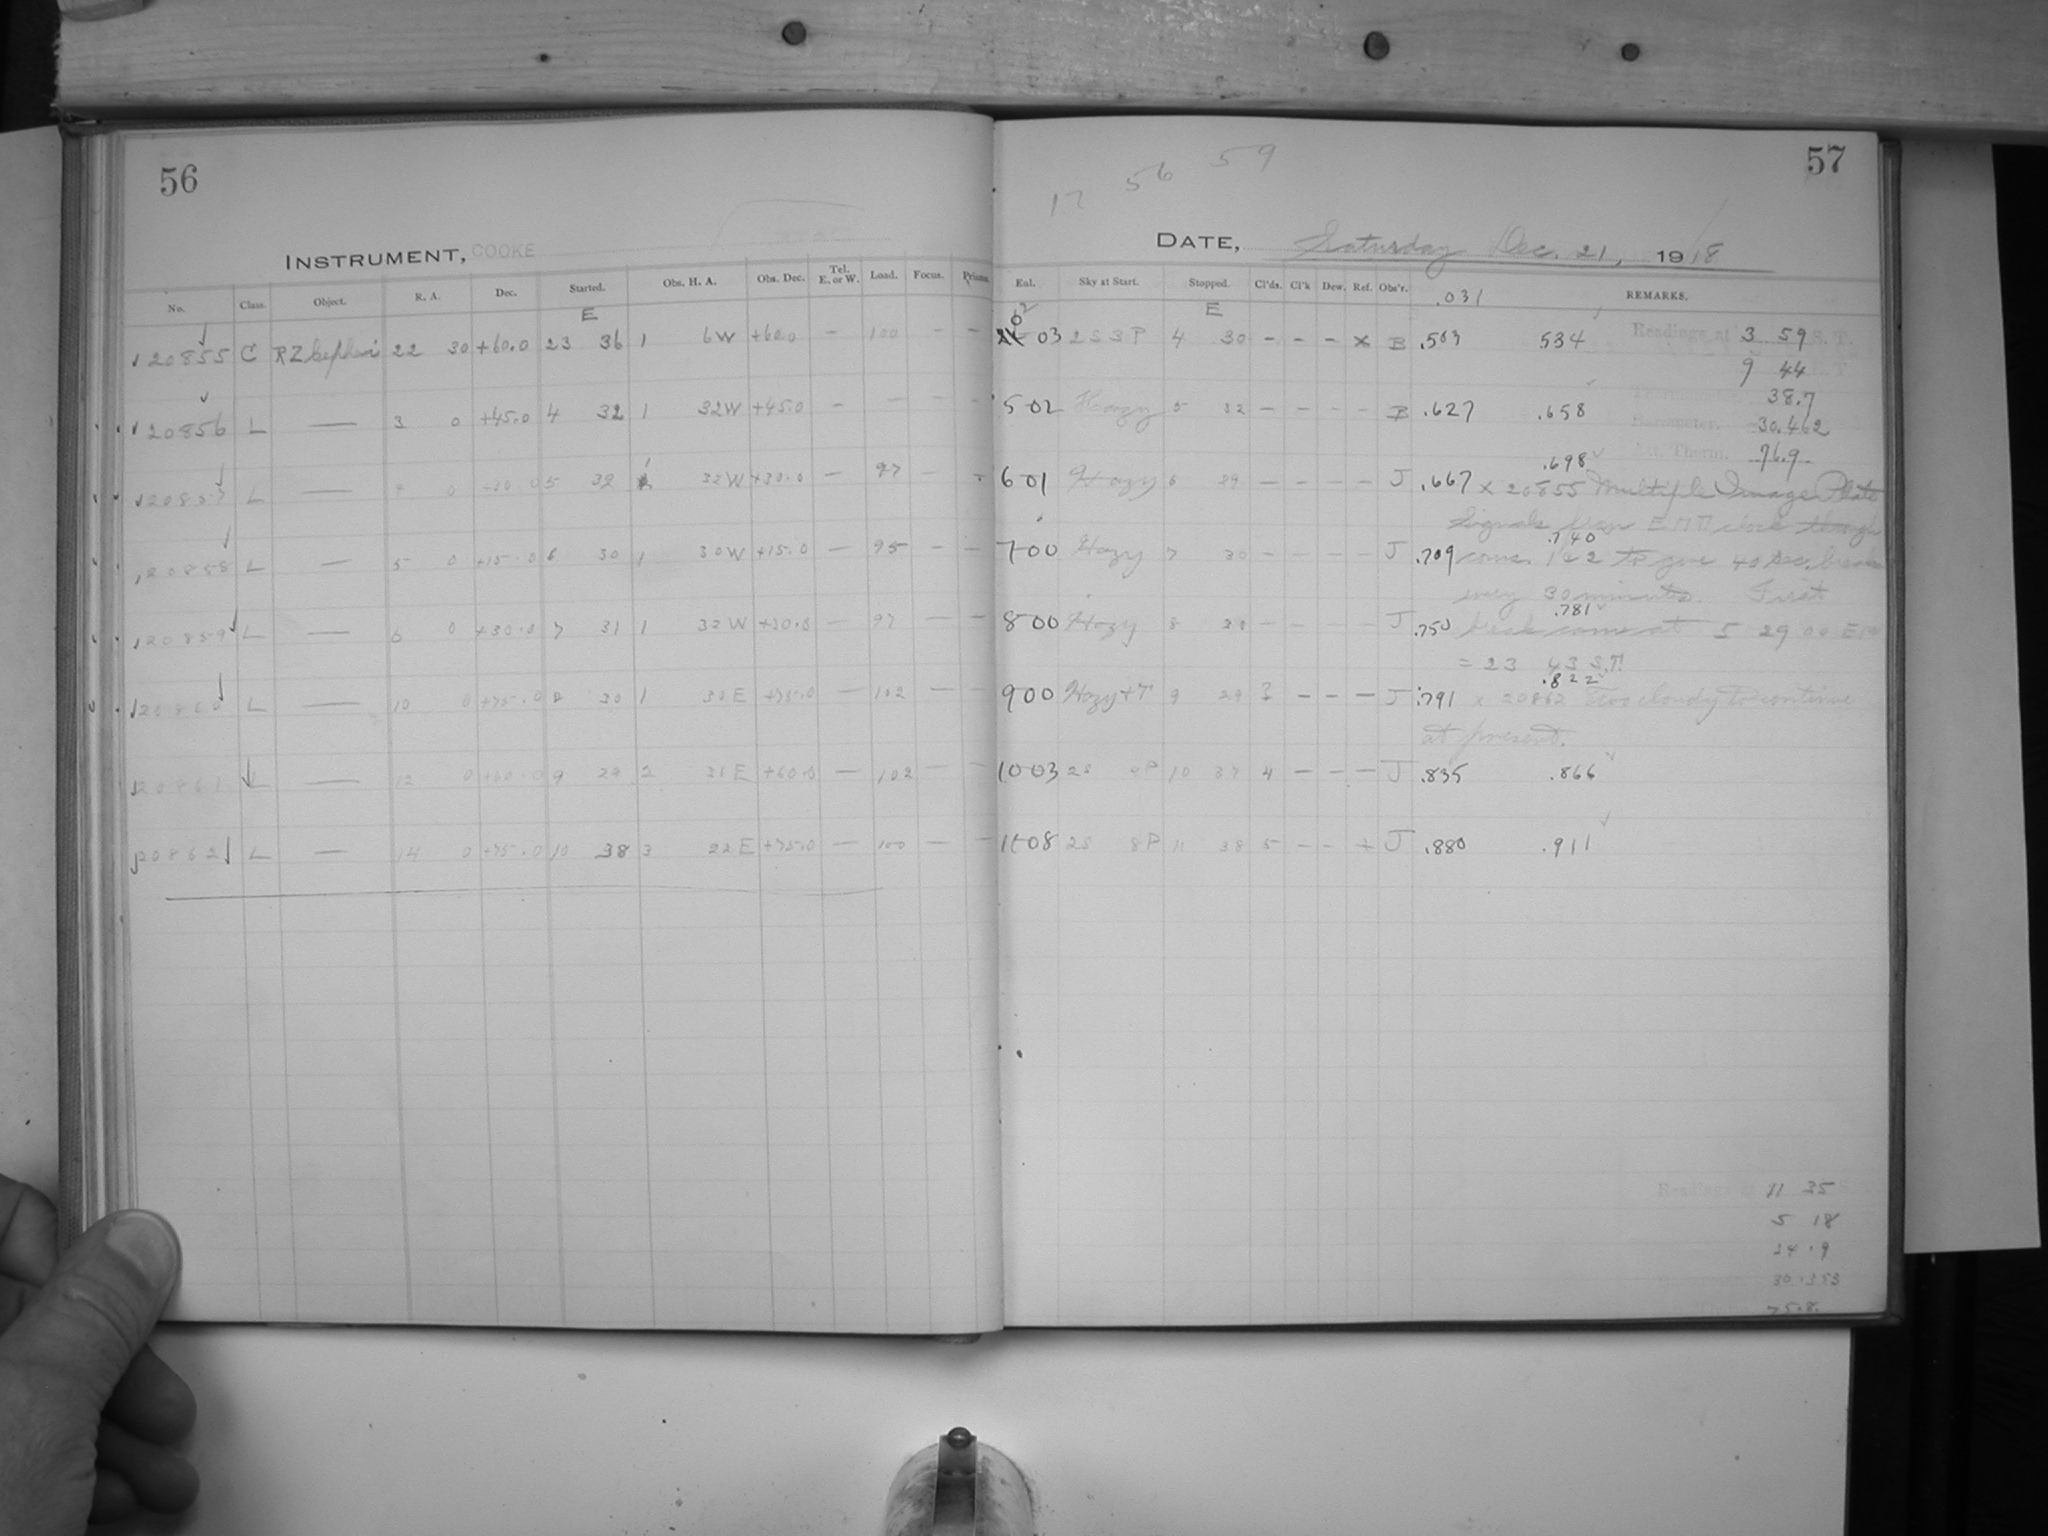 56
INSTRUMENT, COOKE
No. Class. Object. R. A. Dec. Started. Obs. H. A. Obs. Dec. Tel. E. or W. Load. Focus. Prisms.
E
20855 C RZ Cephei 22 30 +60.0 23 36 1 6W +60.0 — 100 — —
20856 L — 3 0 +45.0 4 32 1 32W +45.0 — — — —
20857 L — 0 +30.0 5 32 1 32W +30.0 — 97 — —
20858 L — 5 0 +15.0 6 30 1 30W +15.0 — 95 — —
20859 L — 6 0 +30.0 7 31 1 32W +30.0 — 97 — —
20860 L — 10 0 +75.0 8 30 1 30E +75.0 — 102 — —
20861 L — 12 0 +60.0 9 29 2 31E +60.0 — 102 — —
20862 L — 14 0 +75.0 10 38 3 22E +75.0 — 100 — —
57
17 56 59
DATE, Saturday Dec. 21, 1918
Eul. Sky at Start. Stopped. Cl'ds. Cl'k Dew. Ref. Obs'r. .031 REMARKS.
E
03 2S 3P 4 30 – – – x B .503 534 Readings at 3 59 S. T.
9 44
38.7
502 Hazy 5 32 – – – – B .627 .658 Barometer. 30.462
Att. Therm. 76.9
.698
601 Hazy 6 29 – – – – J .667 x 20855 Multiple Image Plate
Signals from EMT clock through
.740
700 Hazy 7 30 – – – – J .709 cams 1 & 2 to give 40 sec. breaks
every 30 minutes. First
.781
800 Hazy 8 – – – – J .750 break came at 5 29 00 E
= 23 43 S.T.
.822
900 Hazy+T 9 29 3 – – – J .791 x 20862 Too cloudy to continue
at present.
1003 2S 4P 10 37 4 – – – J .835 .866
1108 2S 8P 11 38 5 – – x J .880 .911
Readings at 11 35
5 18
34.9
30.353
75.8